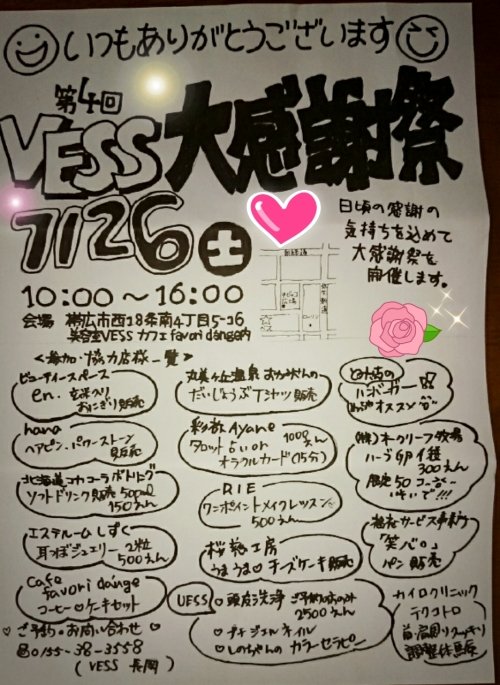 いつもありがとうございます
第4回
VESS大感謝祭
7/26土
日頃の感謝の
気持ちを込めて
大感謝祭を
開催します。
10:00〜16:00
会場 帯広市西18条南4丁目5-16
美容室VESS カフェ favori dange内
＜参加・協力店様一覧＞
ビューティースペース
en. 玄米入り
おにぎり販売
hana
ヘアピン.パワーストーン
販売
北海道コカコーラボトリング
ソフトドリンク販売 500ml
150えん
エステルームしずく
耳つぼジュエリー 2粒
500えん
Cafe
favori dange
コーヒー♡ケーキセット
丸美ヶ丘温泉のおかみさんの
だいじょうぶTシャツ販売
彩敍Ayane
タロット占い or 1000えん
オラクルカード(15分)
RIE
ワンポイントメイクレッスン
500えん
桜慈工房
うまうま♡チーズケーキ販売
VESS
♡頭皮洗浄 ご予約のお客のみ
2500えん
♡プチジェルネイル
♡しのちゃんのカラーセラピー
ハンバーガー
オススメ
(株)オークリーフ牧場
300えん
限定50
福祉サービス事業所
「笑心。」
パン販売
カイロクリニック
テクオトロ
首・肩周りスッキリ
調整体験
♡ご予約・お問い合わせ♡
☎0155-38-3558
(VESS 長岡)